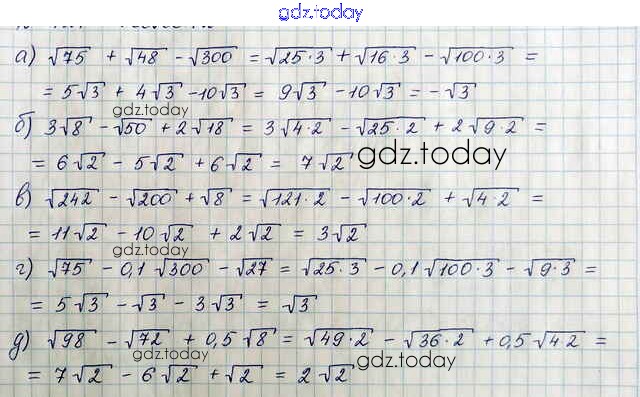 gdz.today
а) √75 + √48 - √300 = √25·3 + √16·3 - √100·3 =
= 5√3 + 4√3 - 10√3 = 9√3 - 10√3 = -√3
gdz.today
б) 3√8 - √50 + 2√18 = 3√4·2 - √25·2 + 2√9·2 =
= 6√2 - 5√2 + 6√2 = 7√2
gdz.today
в) √242 - √200 + √8 = √121·2 - √100·2 + √4·2 =
= 11√2 - 10√2 + 2√2 = 3√2
gdz.today
г) √75 - 0,1√300 - √27 = √25·3 - 0,1√100·3 - √9·3 =
= 5√3 - √3 - 3√3 = √3
д) √98 - √72 + 0,5√8 = √49·2 - √36·2 + 0,5√4·2 =
gdz.today
gdz.today
= 7√2 - 6√2 + √2 = 2√2